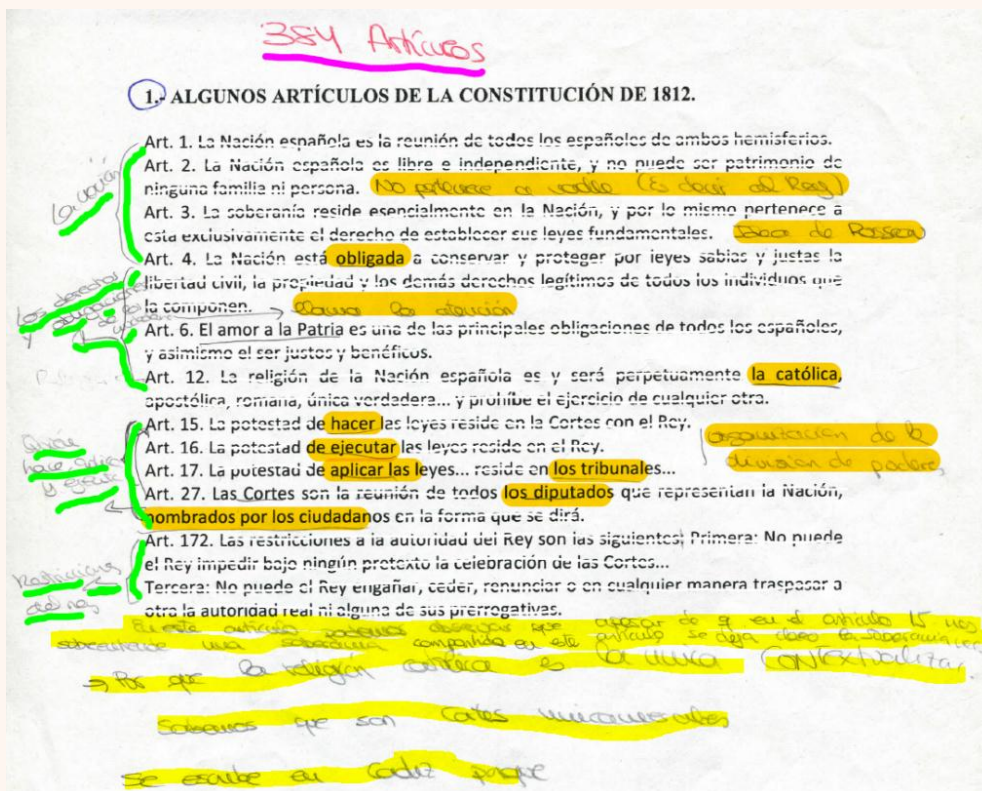 384 Artículos
1.- ALGUNOS ARTÍCULOS DE LA CONSTITUCIÓN DE 1812.
Art. 1. La Nación española es la reunión de todos los españoles de ambos hemisferios.
Art. 2. La Nación española es libre e independiente, y no puede ser patrimonio de
ninguna familia ni persona. No pertenece a nadie (Es decir al Rey)
La nación
Art. 3. La soberanía reside esencialmente en la Nación, y por lo mismo pertenece a
esta exclusivamente el derecho de establecer sus leyes fundamentales. Idea de
Art. 4. La Nación está obligada a conservar y proteger por leyes sabias y justas la
libertad civil, la propiedad y los demás derechos legítimos de todos los individuos que
la componen. → llama la atención
Los derechos
y
Art. 6. El amor a la Patria es una de las principales obligaciones de todos los españoles,
y asimismo el ser justos y benéficos.
Art. 12. La religión de la Nación española es y será perpetuamente la católica,
apostólica, romana, única verdadera... y prohíbe el ejercicio de cualquier otra.
Art. 15. La potestad de hacer las leyes reside en la Cortes con el Rey.
Art. 16. La potestad de ejecutar las leyes reside en el Rey.
Art. 17. La potestad de aplicar las leyes... reside en los tribunales...
organización de la
división de poderes
Quién
hace, aplica
y ejecuta
Art. 27. Las Cortes son la reunión de todos los diputados que representan la Nación,
nombrados por los ciudadanos en la forma que se dirá.
Art. 172. Las restricciones a la autoridad del Rey son las siguientes; Primera: No puede
el Rey impedir bajo ningún pretexto la celebración de las Cortes...
Tercera: No puede el Rey engañar, ceder, renunciar o en cualquier manera traspasar a
otra la autoridad real ni alguna de sus prerrogativas.
Restricciones
del rey
En este artículo podemos observar que apesar de q en el artículo 15 nos
una soberanía compartida en este artículo se deja claro la soberanía
⇒ Por que la religión católica es la única CONTEXTUALIZAR
Sabemos que son Cortes unicamerales
Se escribe en Cadiz porque